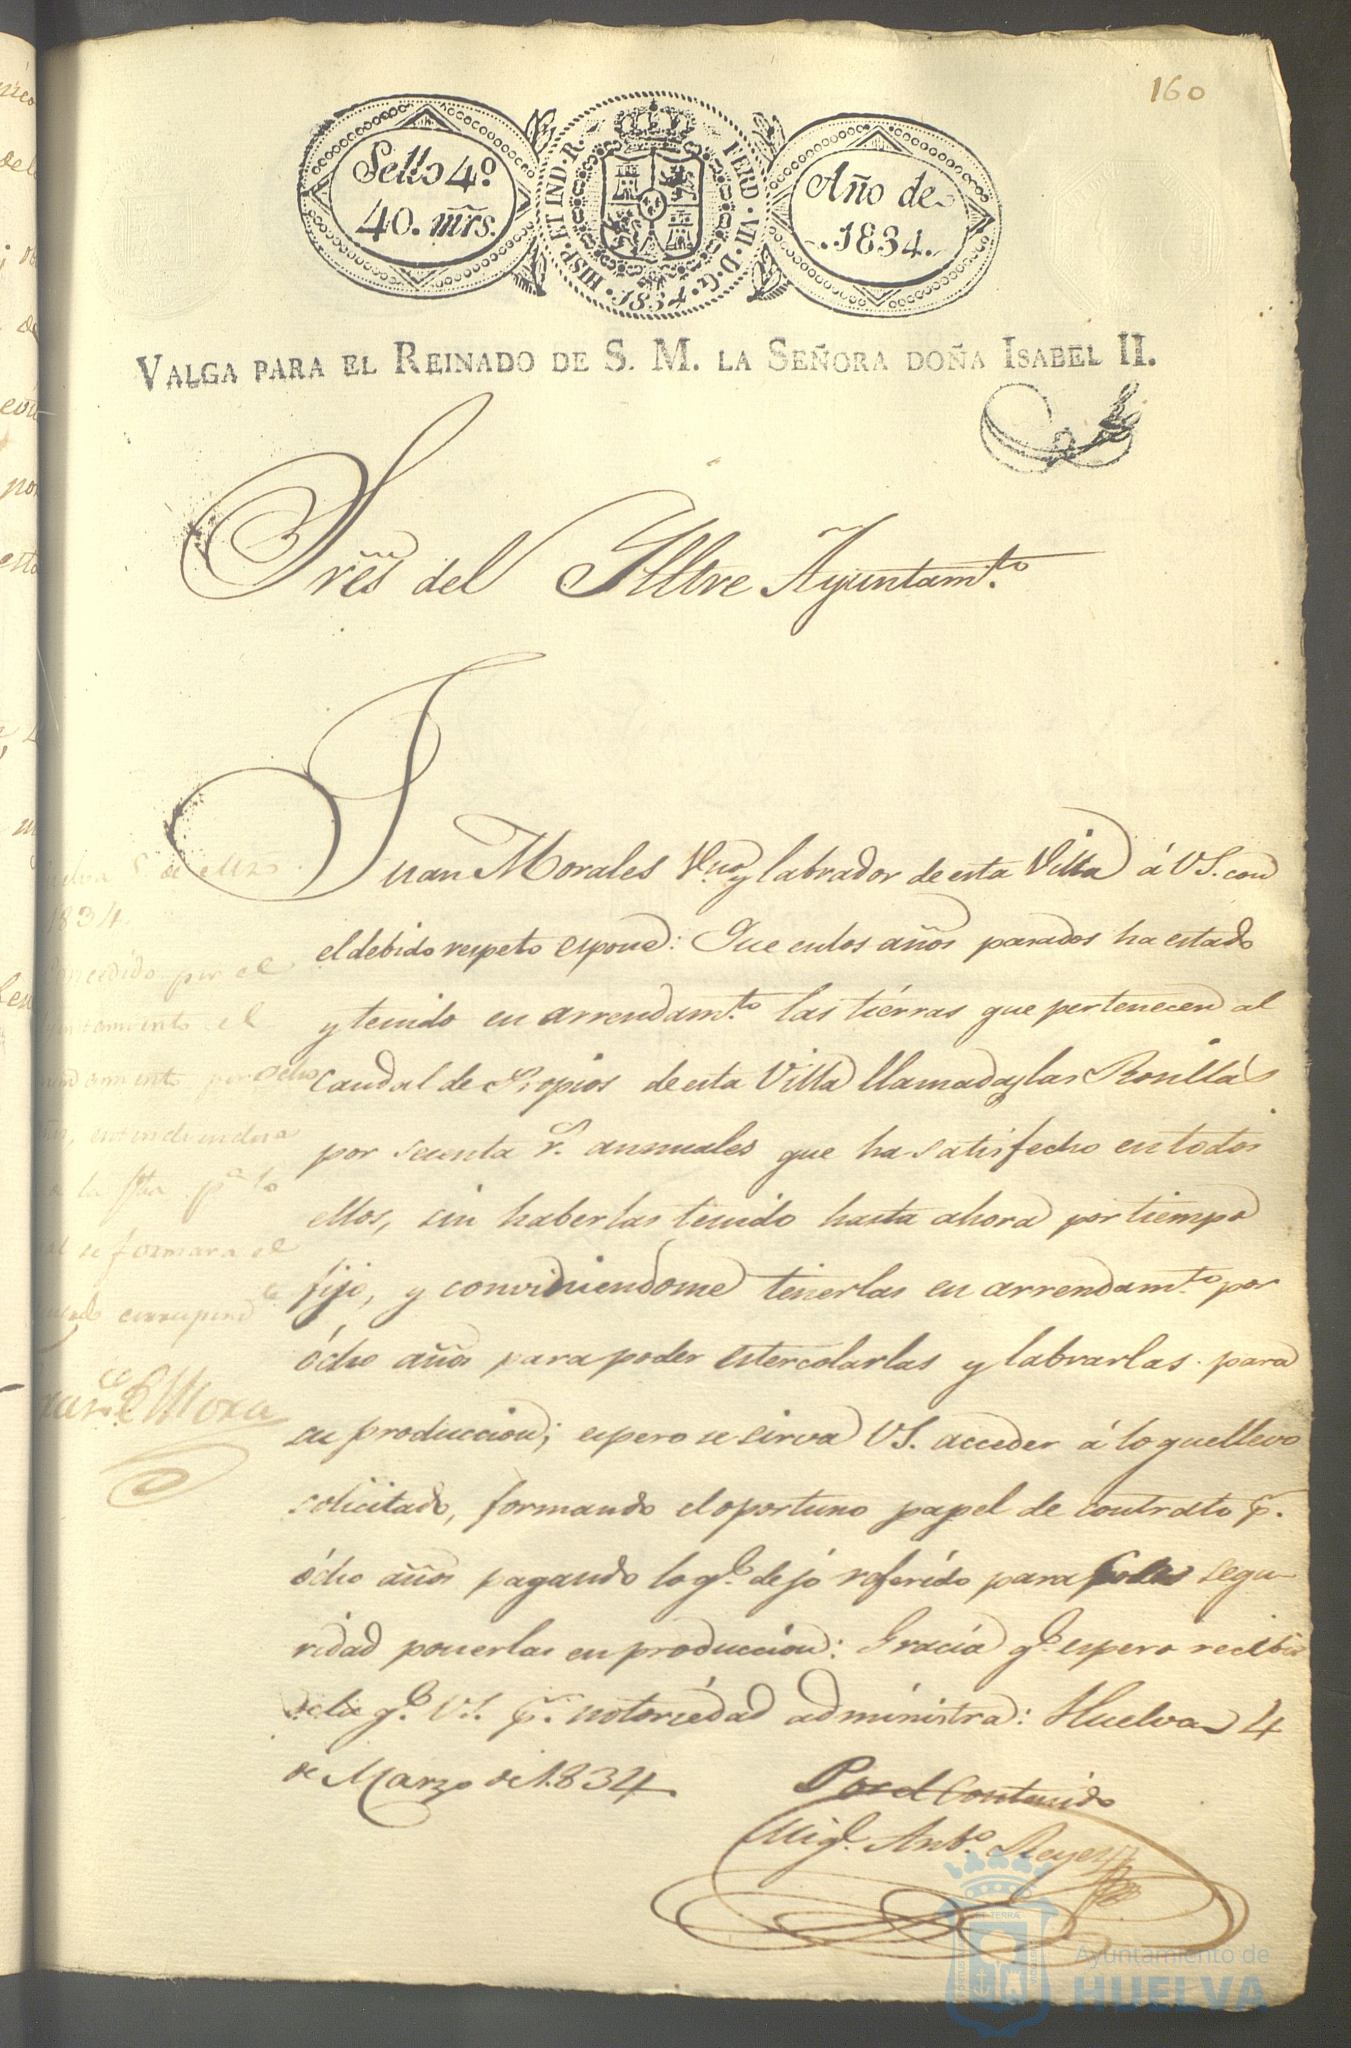 160
Sello 4º
40. mrs.
HISP. ET IND. R. FERD. VII. D. G. 1834.
Año de
1834.
VALGA PARA EL REINADO DE S. M. LA SEÑORA DOÑA ISABEL II.
Sres del Illtre Ayuntam.to
Juan Morales Vno y labrador de esta Villa á VS. con
el debido respeto espone: Que en los años pasados ha estado
y tenido en arrendam.to las tiérras que pertenecen al
Caudal de Propios de esta Villa llamadas las Rosillas
por sesenta r.s annuales que ha satisfecho en todos
ellos, sin haberlas tenido hasta ahora por tiempo
fijo, y conviniendome tenerlas en arrendam.to por
ócho años para poder estercolarlas y labrarlas para
su produccion; espero se sirva VS. acceder á lo que llevo
solicitado, formando el oportuno papel de contrato p.r
ócho años pagando lo q.e dejo referido para seguridad
ponerlas en produccion: Gracia q.e espero recibir
de la q.e VS. p.r notoriedad administra: Huelva 4
de Marzo de 1834.
Por el Contenido
Mig.l Ant.o Reyes
Huelva 5 de Mzo
1834
Concedido por el
Ayuntamiento el
arrendamiento por ocho
años, entendiendose
p.a lo
se formara el
Mora
Ayuntamiento de
HUELVA